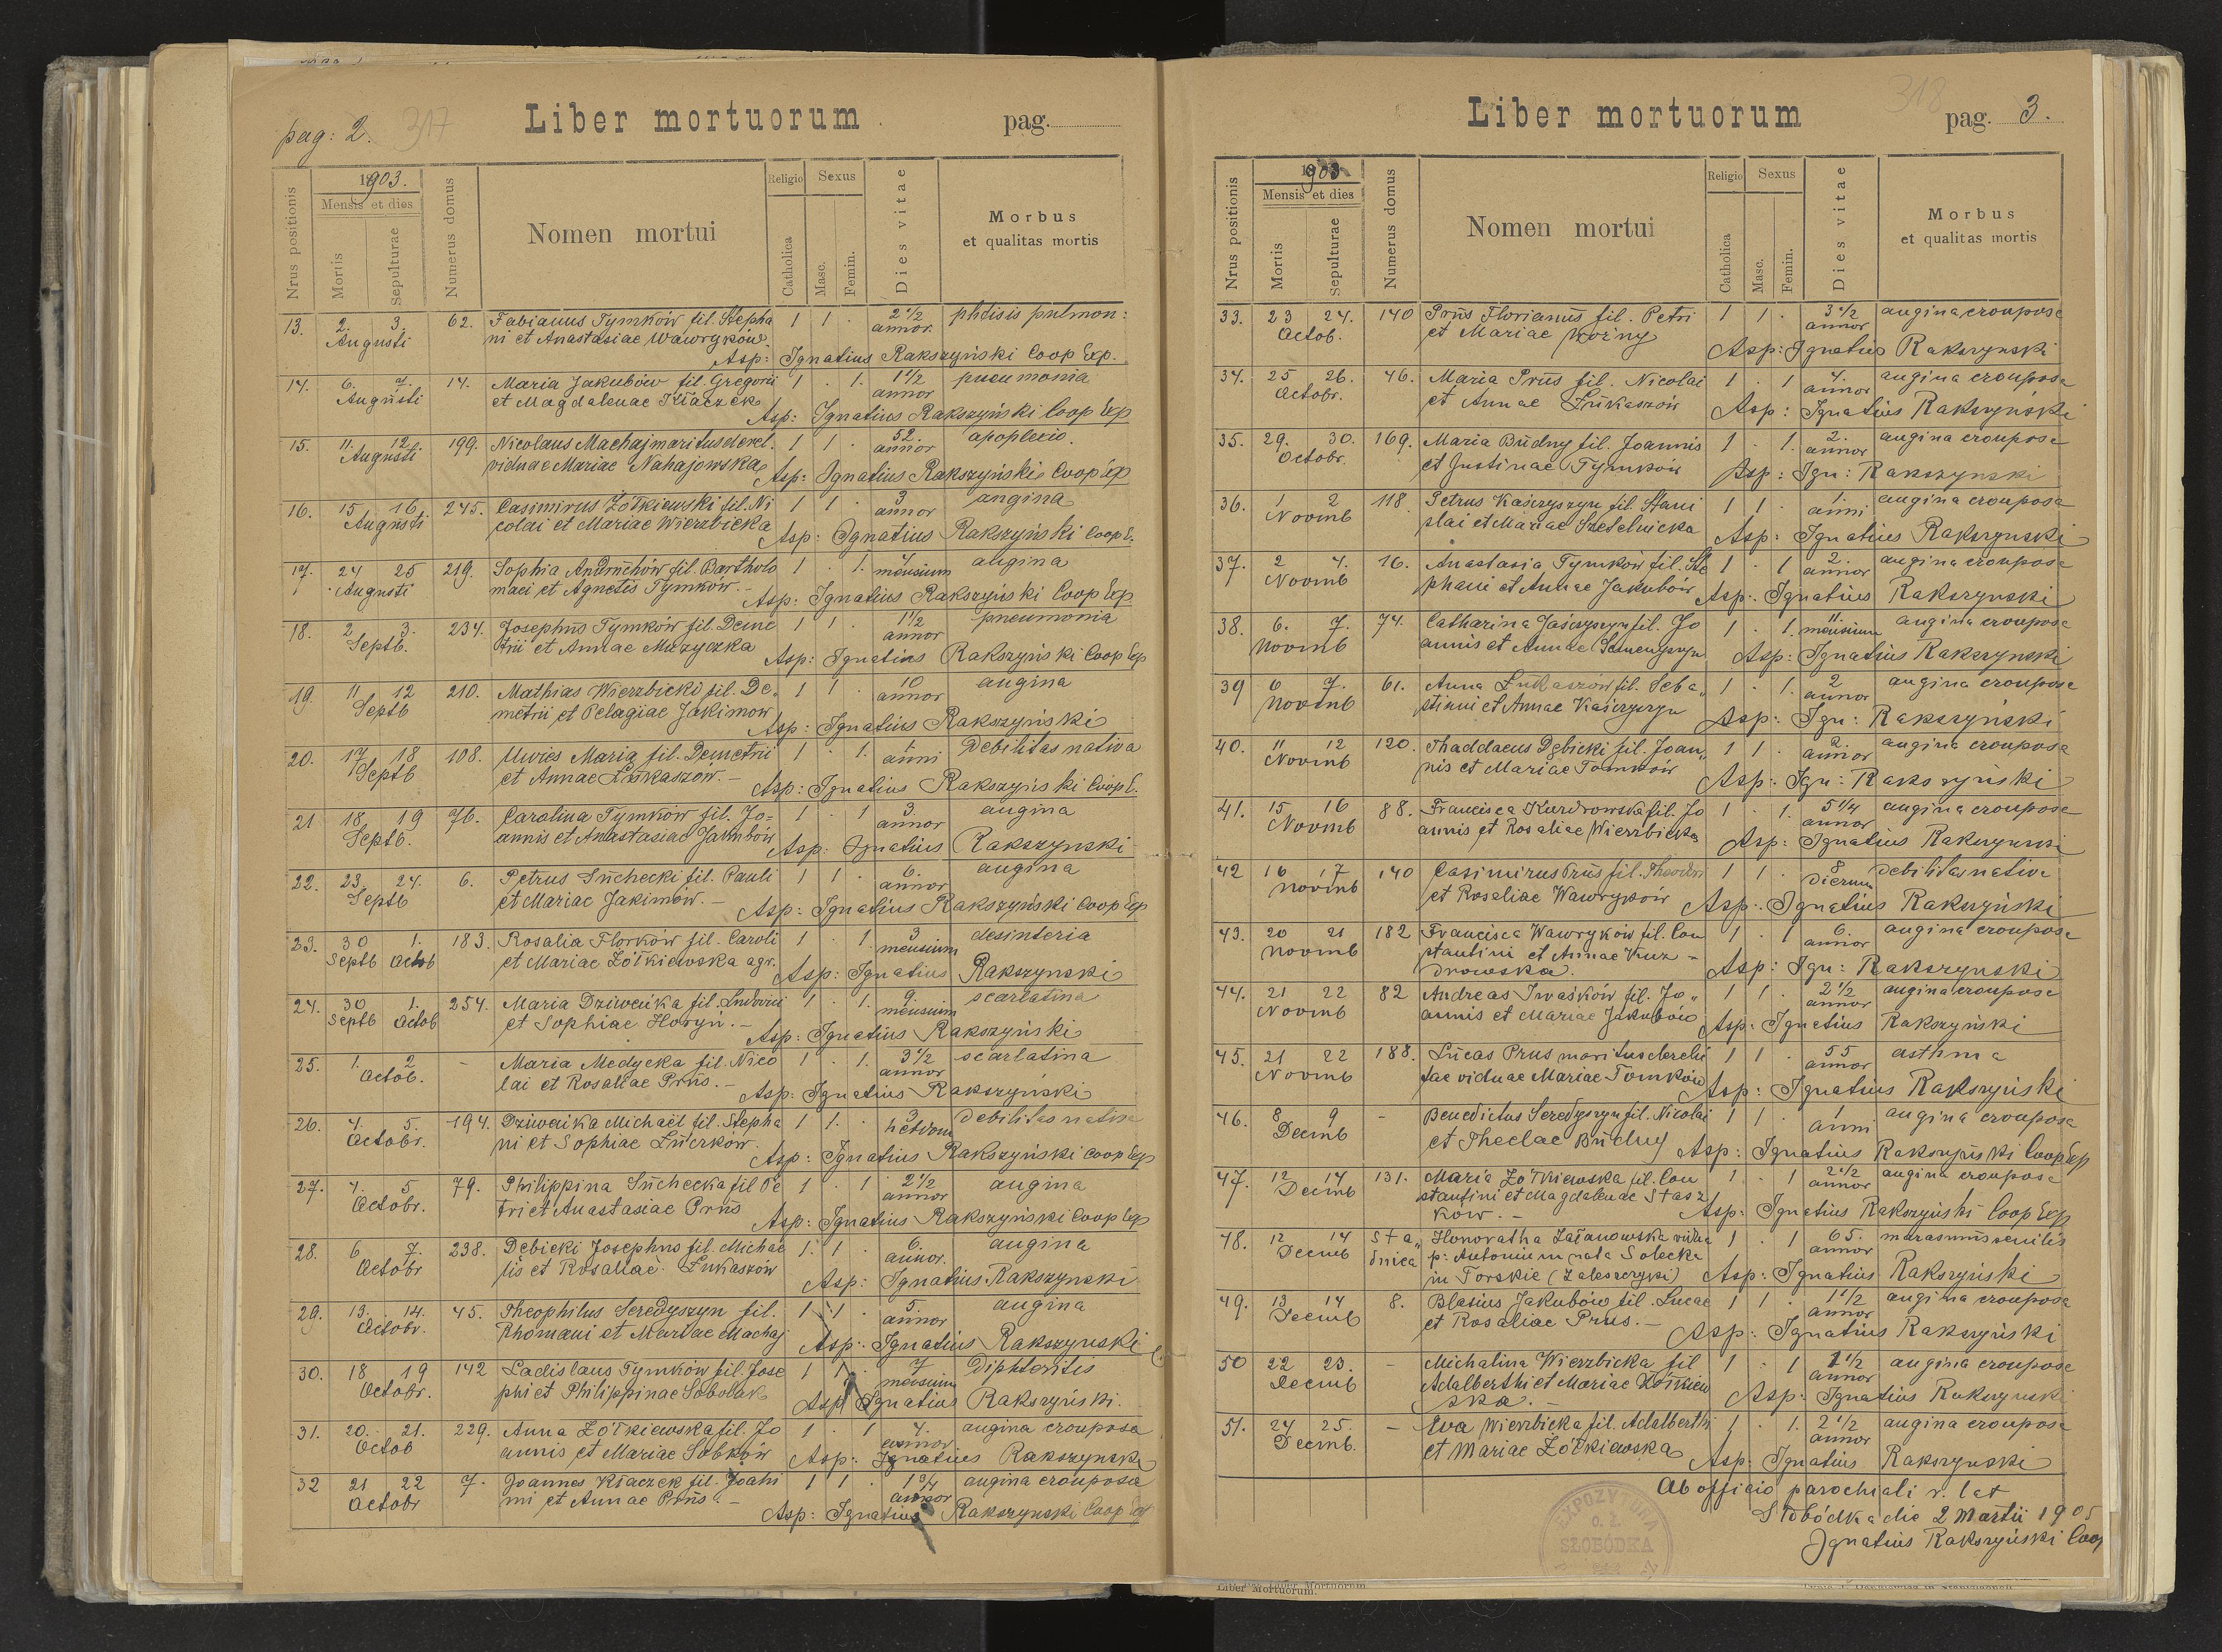 pag: 2. 317
Liber mortuorum
pag.
Nrus positionis
1903.
Mensis et dies
Mortis
Sepulturae
Numerus domus
Nomen mortui
Religio
Catholica
Sexus
Masc.
Femin.
Dies vitae
Morbus
et qualitas mortis
13. 2. 3. 62. Fabianus Tymków fil. Stepha 1 1 . 2 1/2 phtisis pulmon:
Augusti ni et Anastasiae Wawryków. annor.
Asp: Ignatius Rakszyński Coop Exp.
14. 6. 7. 14. Maria Jakubów fil. Gregorii 1 . 1. 1 1/2 pneumonia
Augusti et Magdalenae Kłaczek annor
Asp: Ignatius Rakszyński Coop Exp
15. 11. 12. 199. Nicolaus Machaj maritus derel. 1 1 . 52. apoplexio.
Augusti viduae Mariae Nahajowska annor
Asp: Ignatius Rakszyński Coop Exp
16. 15 16. 245. Casimirus Żółkiewski fil. Ni 1 1 . 3 angina
Augusti colai et Mariae Wierzbicka annor
Asp: Ignatius Rakszyński Coop E.
17. 24 25 219. Sophia Andruchów fil. Bartholo 1 . 1. 7 angina
Augusti maei et Agnetis Tymków. mensium
Asp: Ignatius Rakszyński Coop Exp
18. 2. 3. 234. Josephus Tymków fil. Deme 1 1 . 1 1/2 pneumonia
Septb. trii et Annae Muzyczka annor
Asp: Ignatius Rakszyński Coop Exp
19. 11 12 210. Mathias Wierzbicki fil. De. 1 1 . 10 angina
Septb metrii et Pelagiae Jakimow annor
Asp: Ignatius Rakszyński
20. 17 18 108. Uwies Maria fil. Demetrii 1 . 1. 1 Debilitas nativa
Septb et Annae Łukaszów. - anni
Asp: Ignatius Rakszyński Coop E.
21 18 19 76. Carolina Tymków fil. Jo= 1 . 1 3 angina
Septb. annis et Anastasiae Jakubów annor
Asp: Ignatius Rakszynski
22. 23. 24. 6. Petrus Suchecki fil. Pauli 1 1 . 6. angina
Septb et Mariae Jakimów. - annor
Asp: Ignatius Rakszyński Coop Exp
23. 30 1. 183. Rosalia Florków fil. Caroli 1 . 1. 3 desinteria
Septb Octob et Mariae Żółkiewska agr. mensium
Asp: Ignatius Rakszynski
24. 30 1. 254. Maria Dziweńka fil. Ludovici 1 . 1. 9. scarlatina
Septb Octob et Sophiae Horyń. - mensium
Asp: Ignatius Rakszyński
25. 1. 2 - Maria Medycka fil. Nico 1 . 1. 3 1/2 scarlatina
Octob. lai et Rosaliae Prus. - annor
Asp: Ignatius Rakszyński
26. 4. 5. 194. Dziweńka Michael fil. Stepha 1 1. . 3 Debilitas nativa
Octobr. ni et Sophiae hebdom
Asp: Ignatius Rakszyński Coop Exp
27. 4. 5 79. Philippina Suchecka fil Pe 1 . 1 2 1/2 angina
Octobr. tri et Anastasiae Prus annor
Asp: Ignatius Rakszyński Coop Exp
28. 6 7. 238. Dębicki Josephus fil. Michae 1. 1 . 6. angina
Octobr lis et Rosaliae Łukaszów annor.
Asp: Ignatius Rakszynski
29. 13. 14. 45. Theophilus Seredyszyn fil. 1 1 . 5. angina
Octobr. Rhomani et Mariae Machaj annor
Asp: Ignatius Rakszynski
30. 18 19 142 Ladislaus Tymków fil. Jose 1 1 . 7 Diphteritis
Octobr. phi et Philippinae Sobolak mensium
Asp Ignatius Rakszyński.
31. 20. 21. 229. Anna Żółkiewska fil. Jo 1 . 1 4. angina crouposa
Octob annis et Mariae Sobków annor
Asp: Ignatius Rakszynski
32 21 22 7. Joannes Kłaczek fil. Joann 1 1 . 1 3/4 angina crouposa
Octobr et Annae Prus. - annor
Asp: Ignatius Rakszynski Coop Exp
318
Liber mortuorum
pag. 3.
Nrus positionis
1903
Mensis et dies
Mortis
Sepulturae
Numerus domus
Nomen mortui
Religio
Catholica
Sexus
Masc.
Femin.
Dies vitae
Morbus
et qualitas mortis
33. 23 24. 140 Prus Florianus fil. Petri 1 1 . 3 1/2 angina crouposa
Octob. et Mariae Woźny annor
Asp: Ignatius Rakszynski
34. 25 26. 46. Maria Prus fil. Nicolai 1 . 1 4. angina crouposa
Octobr. et Annae Łukaszów annor
Asp: Ignatius Rakszyński
35. 29. 30. 169. Maria Budny fil. Joannis 1 . 1. 2. angina crouposa
Octobr. et Justinae Tymków annor
Asp: Ign: Rakszynski
36. 1 2 118. Petrus Kaśczyszyn fil. Stani 1 1 . 1. angina crouposa
Novmb slai et Mariae Szetelnicka anni
Asp: Ignatius Rakszynski
37. 2 4. 16. Anastasia Tymków fil. Ste 1 . 1 2. angina crouposa
Novmb phani et Annae Jakubów annor
Asp: Ignatius Rakszynski
38. 6. 7. 74. Catharina Jaśczyszyn fil. Jo 1 . 1. 11. angina crouposa
Novmb annis et Annae Semenyszyn mensium
Asp: Ignatius Rakszynski
39 6 7. 61. Anna Łukaszów fil. Seba„ 1 . 1. 2 angina crouposa
Novmb stiani et Annae Kaśczyszyn annor
Asp: Ign: Rakszyński
40. 11 12 120. Thaddaeus Dębicki fil. Joan„ 1 1 . 2. angina crouposa
Novmb nis et Mariae Tomków annor
Asp: Ign: Rakszyński
41. 15 16 88. Francisca Kurdrowska fil. Jo 1 . 1. 5 1/4 angina crouposa
Novmb annis et Rosaliae Wierzbicka annor
Asp: Ignatius Rakszynski
42 16 17 140 Casimirus Prus fil. Theodori 1 1 . 8 Debilitas nativa
Novmb et Rosaliae Wawryków dierum
Asp: Ignatius Rakszyński
43. 20 21 182 Francisca Wawryków fil. Con 1 . 1 6. angina crouposa
Novmb stantini et Annae Kuz- annor
drowska. Asp: Ign: Rakszynski
44. 21 22 82 Andreas Iwaśków fil. Jo„ 1 1 . 2 1/2 angina crouposa
Novmb annis et Mariae Jakubów annor
Asp: Ignatius Rakszyński
45. 21 22 188. Lucas Prus maritus derelic 1 1 . 55 asthma
Novmb tae viduae Mariae Tomków annor
Asp: Ignatius Rakszyński
46. 8 9 - Benedictus Seredyszyn fil. Nicolai 1 1 . 1 angina crouposa
Decmb et Theclae Budny anni
Asp: Ignatius Rakszyński Coop Exp
47. 12 14 131. Maria Żółkiewska fil. Con 1 . 1 2 1/2 angina crouposa
Decmb stantini et Magdalenae Stasz annor
ków. - Asp: Ignatius Rakszyński Coop Exp
48. 12 14 Sta„ Honoratha Załanowska vidua 1 . 1 65. marasmus senilis
Decmb dnica p: Antonium nata Solecka annor
in Torskie (Zaleszczyki) Asp: Ignatius Rakszyński
49. 13 14 8. Blasius Jakubów fil. Lucae 1 1 . 1 1/2 angina crouposa
Decmb et Rosaliae Prus. - annor
Asp: Ignatius Rakszyński
50 22 23. - Michalina Wierzbicka fil 1 . 1 1 1/2 angina crouposa
Decmb Adalberthi et Mariae Żołkiew annor
ska. - Asp: Ignatius Rakszynski
51. 24 25. - Eva Wierzbicka fil. Adalberthi 1 . 1. 2 1/2 angina crouposa
Decmb. et Mariae Żółkiewska annor
Asp: Ignatius Rakszynski
Ab officio parochiali r. lat
Słobódka die 2 Martii 1905
Ignatius Rakszyński Coop
EXPOZYTURA
O. Ł.
SŁOBÓDKA
Liber Mortuorum.